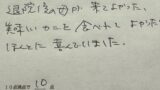 退院後の母が 来てよかった、
美味しいカニを 食べれてよかった
ほんとに 喜んでいました。
10